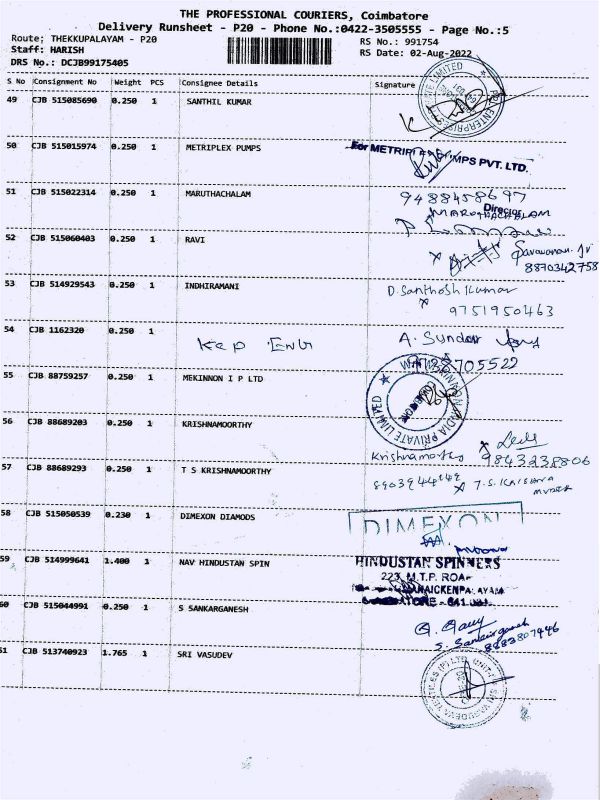 THE PROFESSIONAL COURIERS, Coimbatore
Delivery Runsheet - P20 - Phone No.:0422-3505555 - Page No.:5
Route; THEKKUPALAYAM - P20
RS No.: 991754
Staff: HARISH
RS Date: 02-Aug-2022
DRS No.: DCJB99175405
S No Consignment No Weight PCS Consignee Details Signature
49 CJB 515085690 0.250 1 SANTHIL KUMAR
50 CJB 515015974 0.250 1 METRIPLEX PUMPS
For METRIPLEX PUMPS PVT. LTD.
51 CJB 515022314 0.250 1 MARUTHACHALAM
9488458697
Director
MARUTHACHALAM
52 CJB 515060403 0.250 1 RAVI
Saravanan. Jr
8870342758
53 CJB 514929543 0.250 1 INDHIRAMANI
D. Santhosh Kumar
9751950463
54 CJB 1162320 0.250 1
A. Sundar
705522
55 CJB 88759257 0.250 1 MEKINNON I P LTD
INDIA PRIVATE LIMITED
56 CJB 88689203 0.250 1 KRISHNAMOORTHY
Krishnamorthy 9843238806
57 CJB 88689293 0.250 1 T S KRISHNAMOORTHY
T.S. KRISHNA
58 CJB 515050539 0.230 1 DIMEXON DIAMODS
DIMEXON
59 CJB 514999641 1.400 1 NAV HINDUSTAN SPIN
HINDUSTAN SPINNERS
223, M.T.P. ROAD
60 CJB 515044991 0.250 1 S SANKARGANESH
S. Sankarganesh
9883807946
51 CJB 513740923 1.765 1 SRI VASUDEV